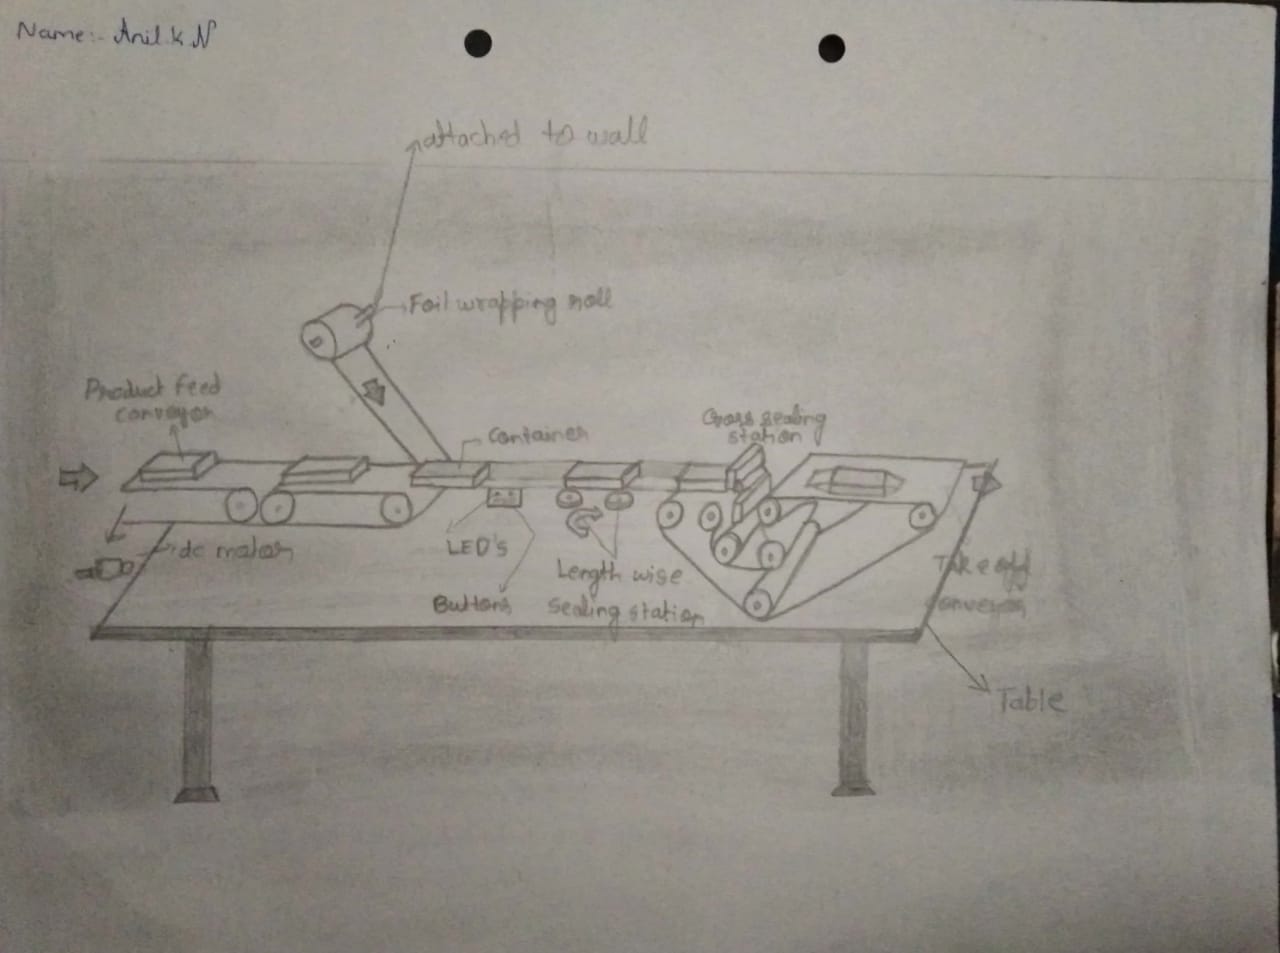 Name:- Anil.k.N
attached to wall
Foil wrapping roll
Product feed
conveyor
Container
Cross sealing
station
dc motor
LED's
Length wise
sealing station
Buttons
Take off
conveyor
Table